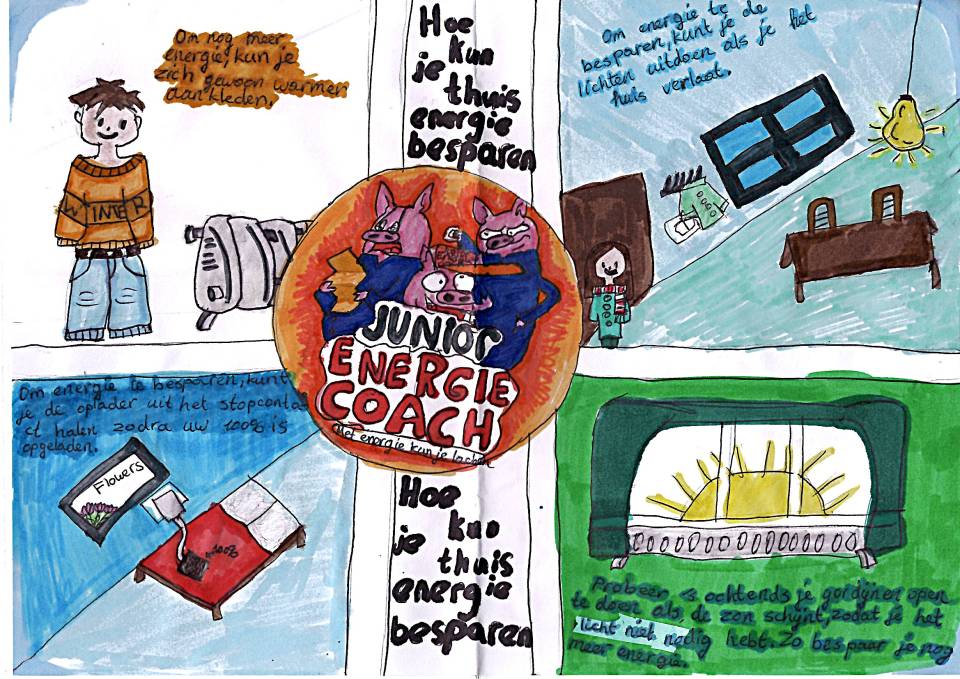 Om nog meer
energie, kun je
zich gewoon warmer
aankleden.
WINTER
Hoe
kun
je
thuis
energie
besparen
Om energie te
besparen, kunt je de
lichten uitdoen als je het
huis verlaat.
JUNIOR
ENERGIE
COACH
Met energie kun je lachen
Om energie te besparen, kunt
je de oplader uit het stopconta
ct halen zodra uw 100% is
opgeladen.
Flowers
100%
Hoe
kun
je
thuis
energie
besparen
Probeer 's ochtends je gordijnen open
te doen als, de zon schijnt, zodat je het
licht niet nodig hebt. Zo bespaar je nog
meer energie.